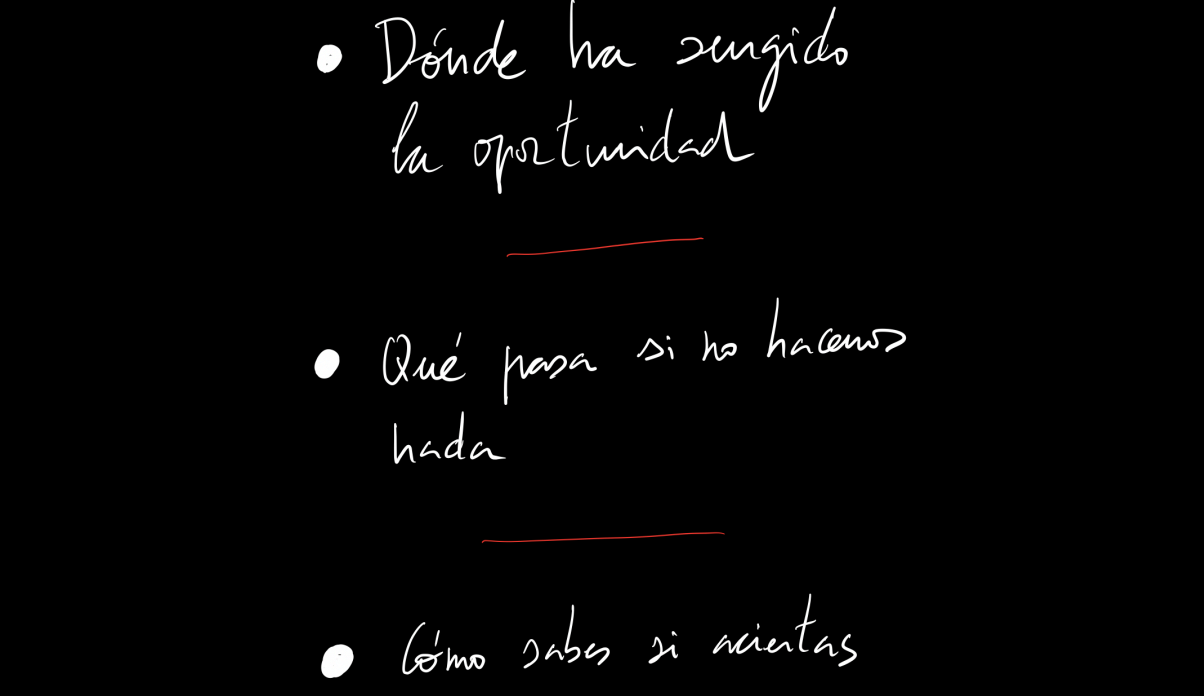 • Dónde ha surgido
la oportunidad
• Qué pasa si no hacemos
nada
• Cómo sabes si aciertas